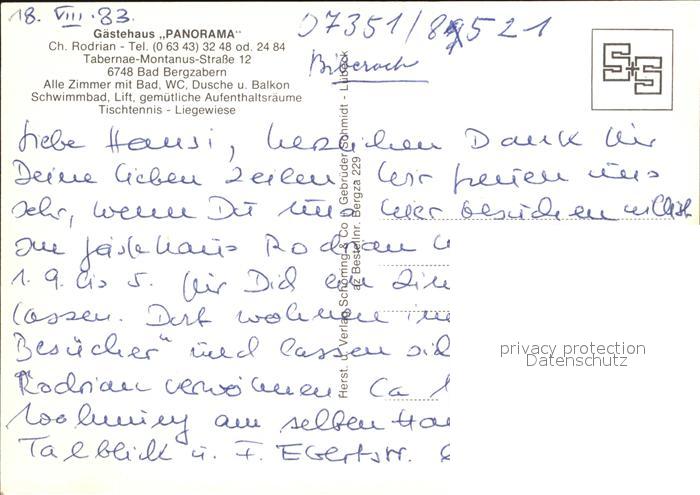 18. VIII. 83.
07351/8 521
Biberach
Gästehaus „PANORAMA"
Ch. Rodrian - Tel. (0 63 43) 32 48 od. 24 84
Tabernae-Montanus-Straße 12
6748 Bad Bergzabern
Alle Zimmer mit Bad, WC, Dusche u. Balkon
Schwimmbad, Lift, gemütliche Aufenthaltsräume
Tischtennis - Liegewiese
S+S
Liebe Hansi, herzlichen Dank für
Deine lieben Zeilen. Wir freuen uns
sehr, wenn Du uns hier besuchen willst
Im Gästehaus Rodrian
1. 9. bis 5. für Dich ein Zim
lassen. Dort wohnen
Besucher" und lassen sic
Rodrian verwöhnen. Ca
Wohnung am selben Ha
Talblick u. F. Ebertstr.
Herst. u. Verlag Schöning & Co + Gebrüder Schmidt - Lübeck
az Bestellnr. Bergza 229
privacy protection
Datenschutz